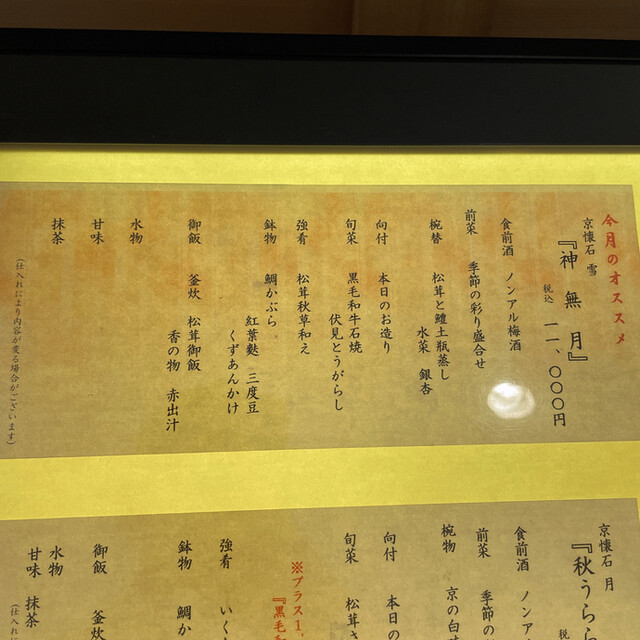 今月のオススメ
京懐石 雪
『神無月』
税込 一一、〇〇〇円
食前酒 ノンアル梅酒
前菜 季節の彩り盛合せ
椀替 松茸と鱧土瓶蒸し
水菜 銀杏
向付 本日のお造り
旬菜 黒毛和牛石焼
伏見とうがらし
強肴 松茸秋草和え
鉢物 鯛かぶら
紅葉麩 三度豆
くずあんかけ
御飯 釜炊 松茸御飯
香の物 赤出汁
水物
甘味
抹茶
(仕入れにより内容が変る場合がございます)
京懐石 月
『秋うらら
税
食前酒 ノンア
前菜 季節の
椀物 京の白
向付 本日の
旬菜 松茸さ
※プラス1,
『黒毛和
強肴 いく
鉢物 鯛か
御飯 釜炊
水物
甘味 抹茶
(仕入れに